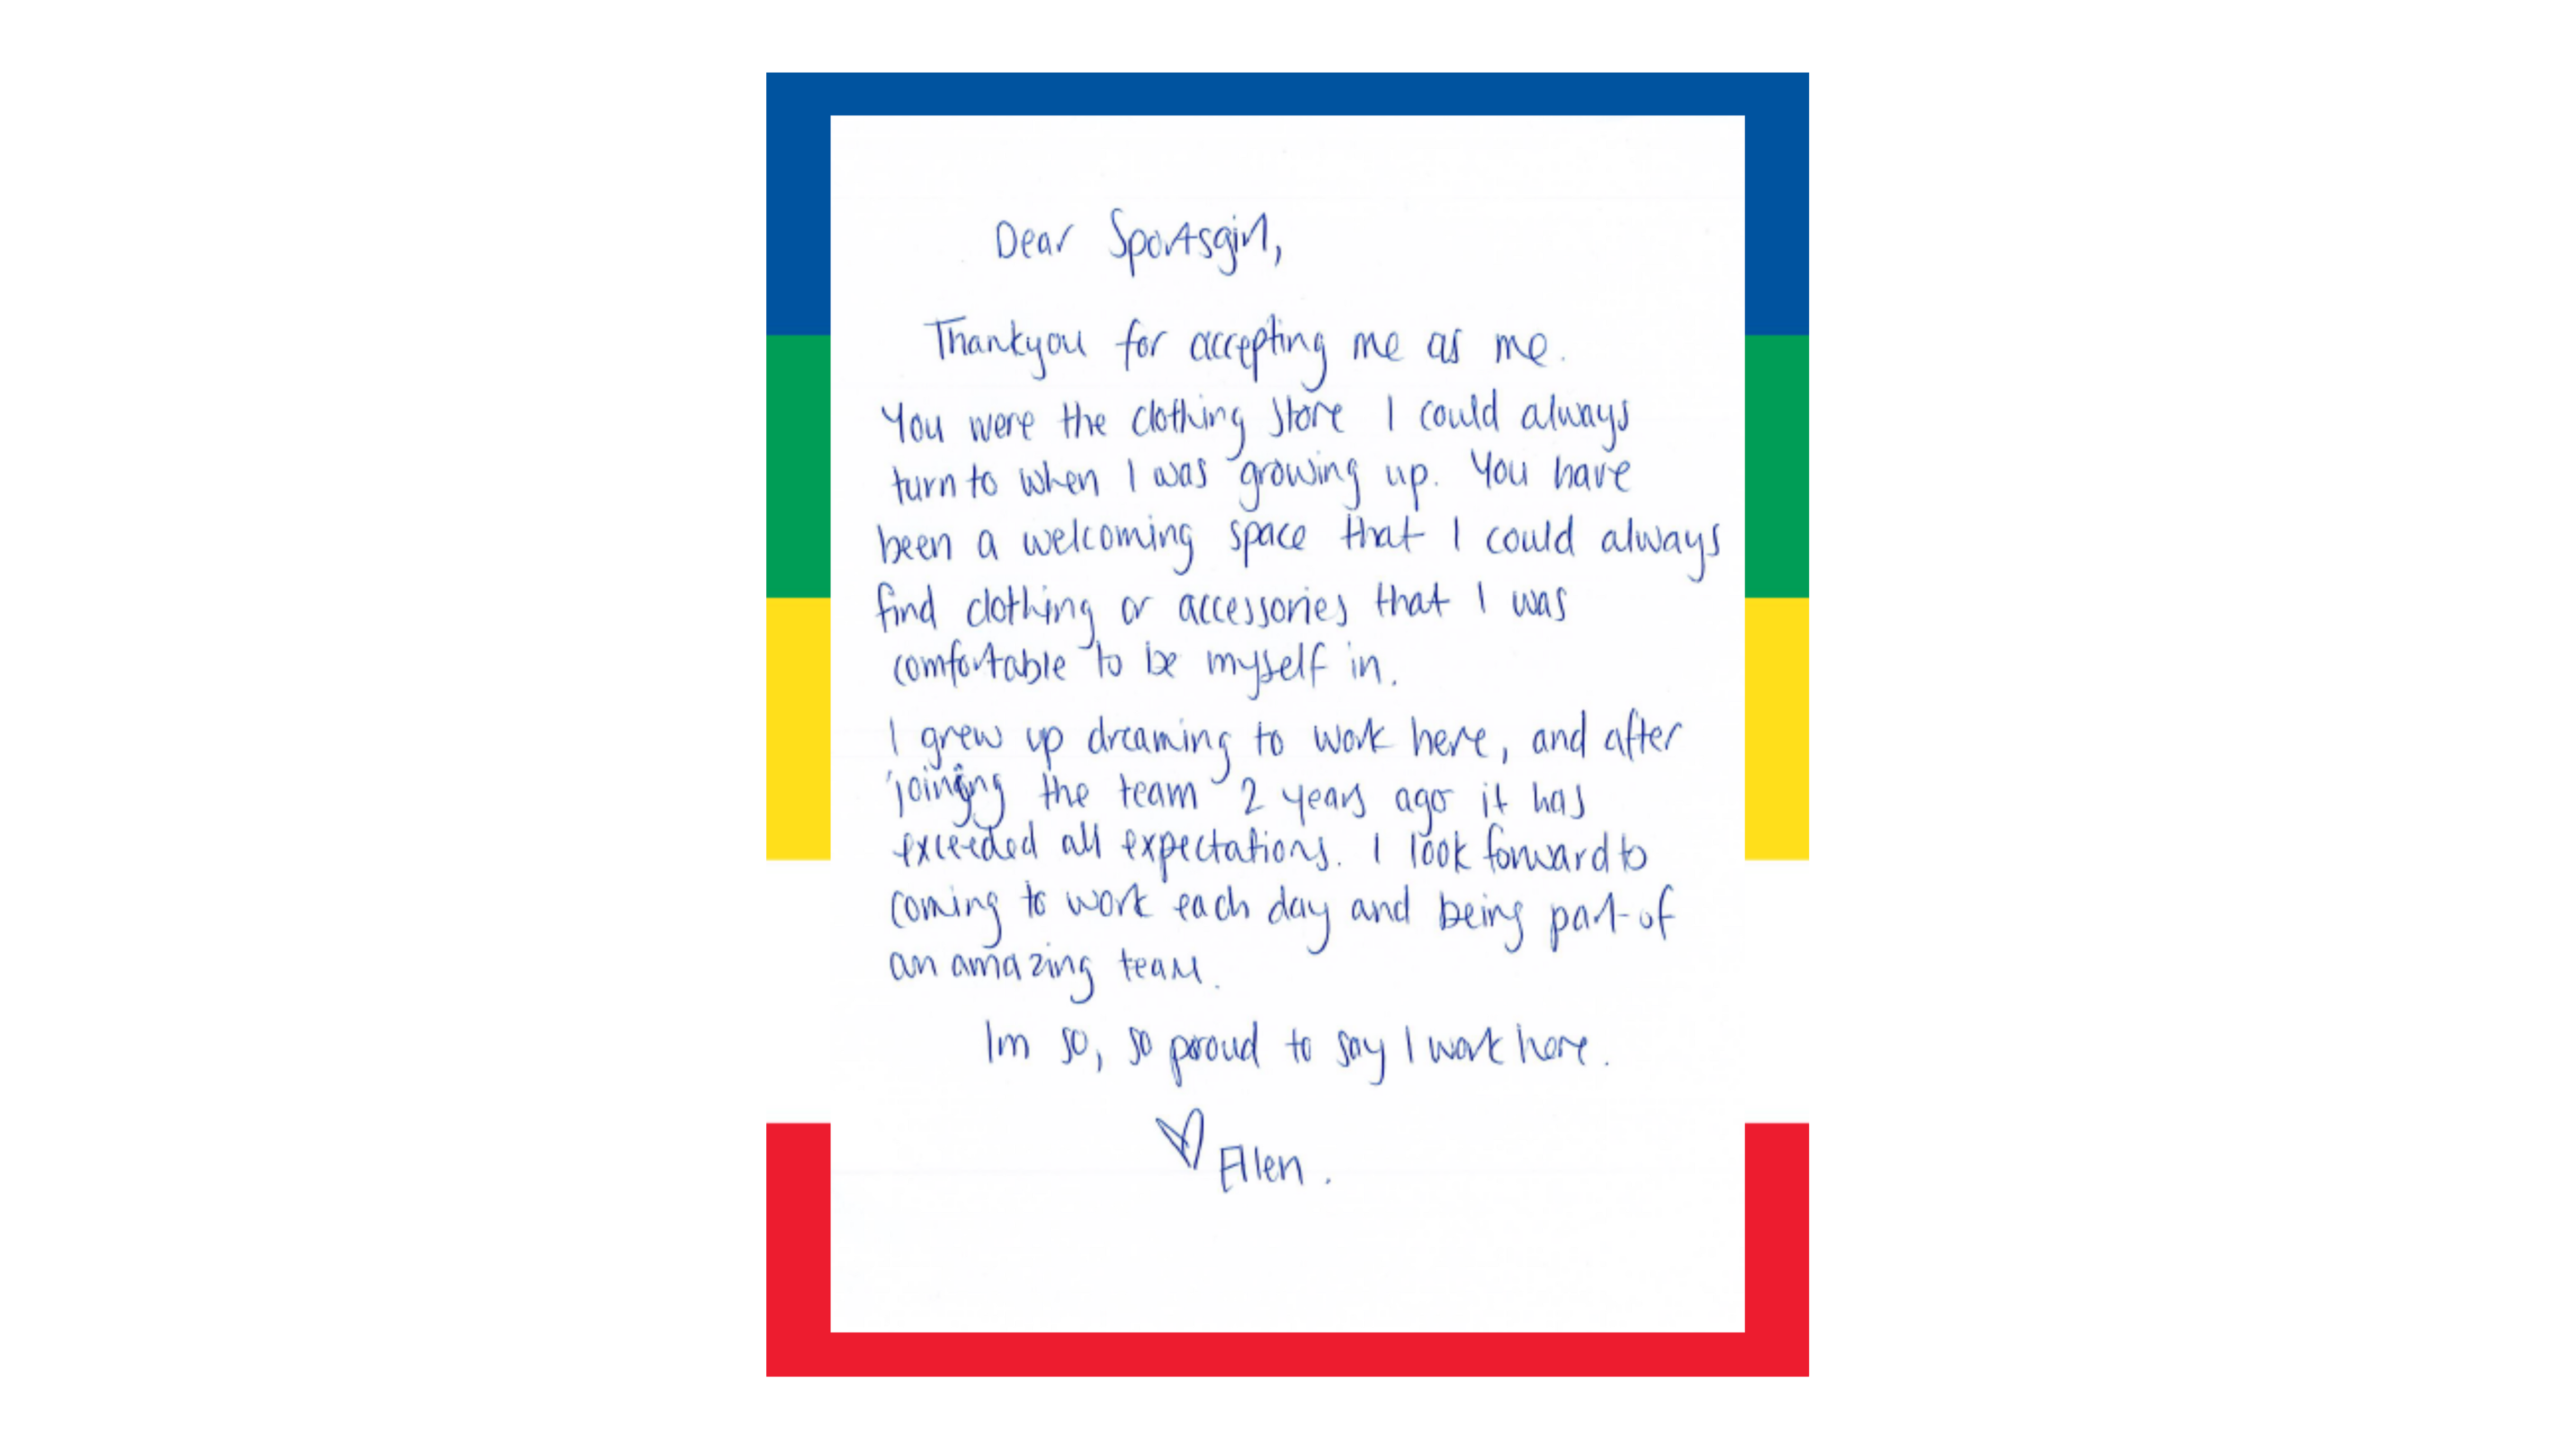 Dear Sportsgirl,
Thankyou for accepting me as me.
You were the clothing store I could always
turn to when I was growing up. You have
been a welcoming space that I could always
find clothing or accessories that I was
comfortable to be myself in.
I grew up dreaming to work here, and after
joining the team 2 years ago it has
exceeded all expectations. I look forward to
coming to work each day and being part of
an amazing team.
Im so, so proud to say I work here.
♡ Ellen.